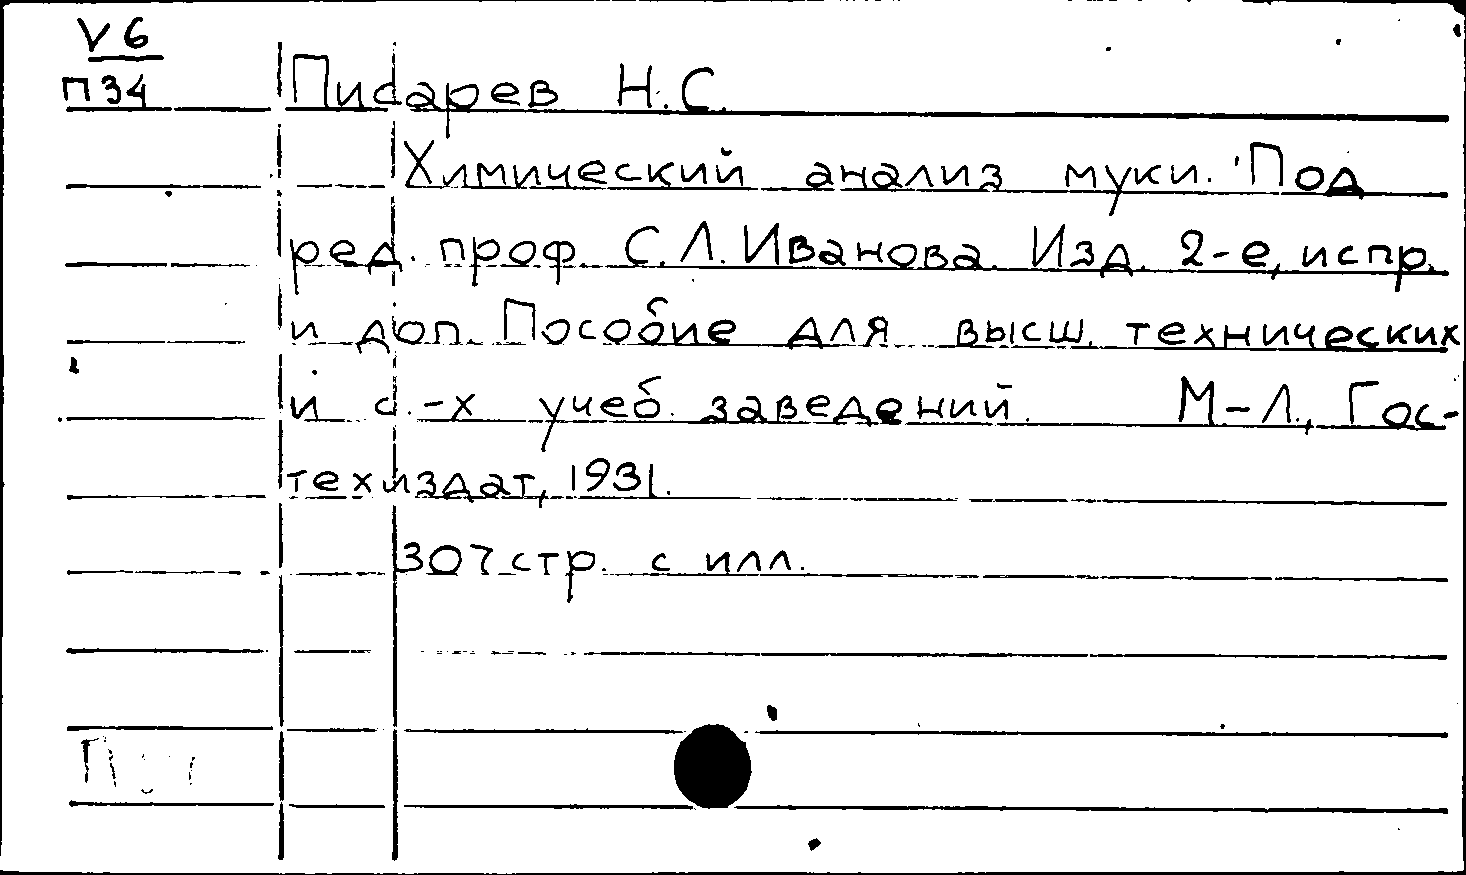 V6
П34
Писарев Н.С.
Химический анализ муки. Под
ред. проф. С.Л. Иванова. Изд. 2-е, испр.
и доп. Пособие для высш. технических
и с.-х учеб. заведений. М-Л., Гос-
техиздат, 1931.
307 стр. с илл.